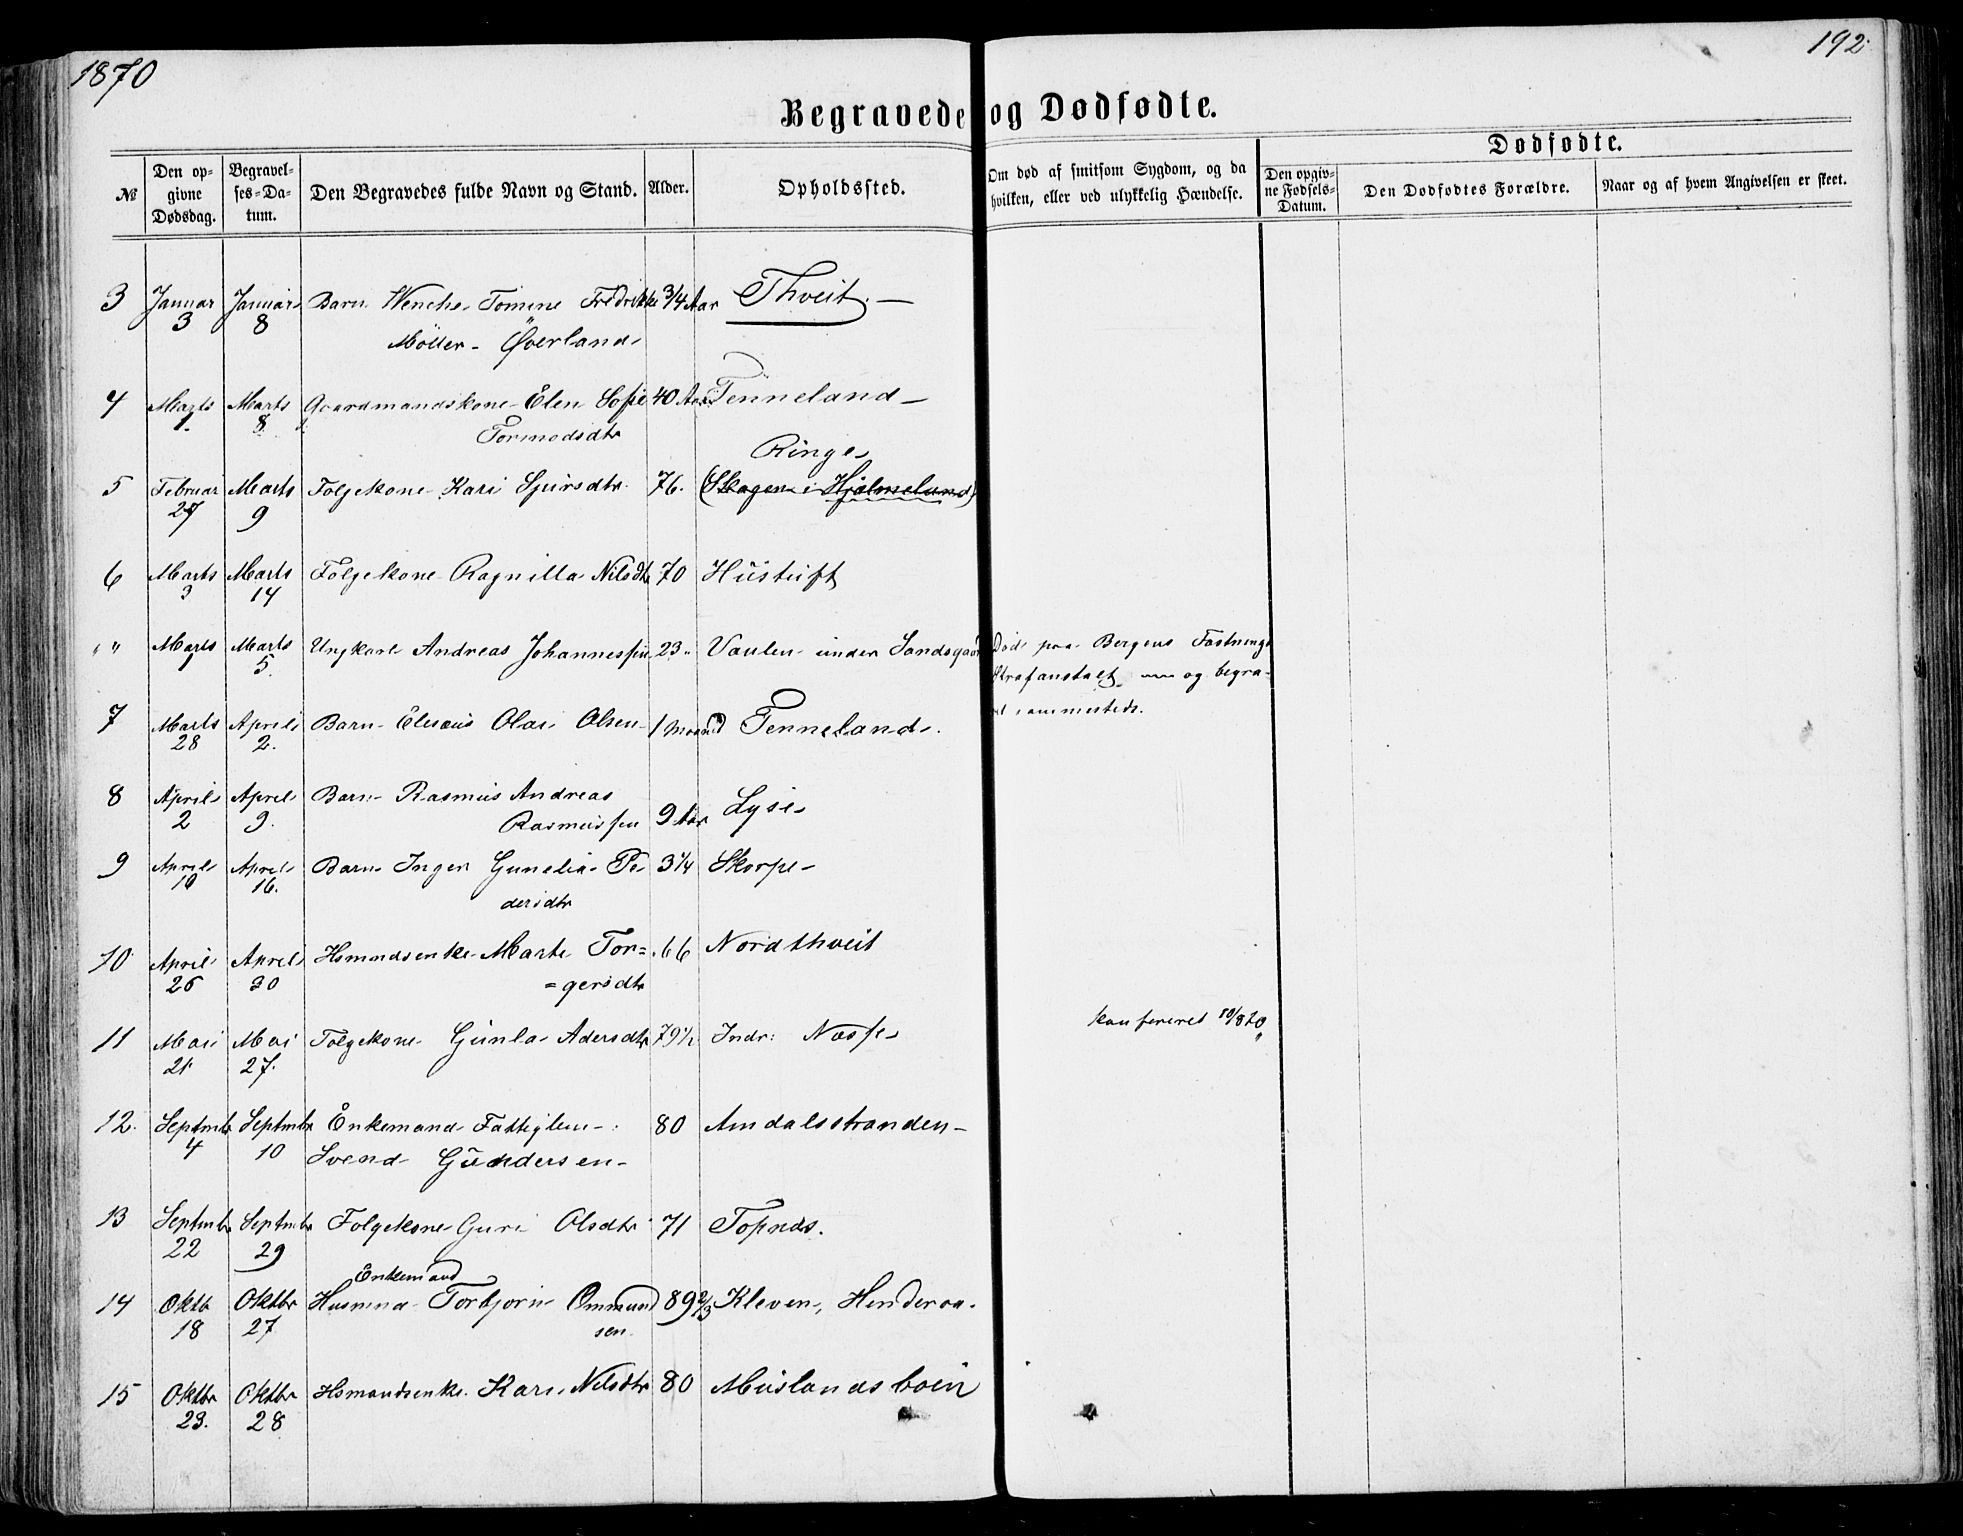 1870
192
Begravede og Dødfødte.
№
Den opgivne Dødsdag.
Begravelses-Datum.
Den Begravedes fulde Navn og Stand.
Alder.
Opholdssted.
Om død af smitsom Sygdom, og da hvilken, eller ved ulykkelig Hændelse.
Dødfødte.
Den opgivne Fødsels-Datum.
Den Dødfødtes Forældre.
Naar og af hvem Angivelsen er skeet.
3 Januar 3 Januar 8 Barn Wenche Tomine Fredrikke 3/4 Aar Thveit.
Möller Øverland
4 Marts 1 Marts 8 Gaardmandskone Elen Sofie 40 Aar Tenneland
Tormodsdtr
Ringe
5 Februar 27 Marts 9 Følgekone Kari Sjursdtr 76. (Skagen i Hjelmeland)
6 Marts 3 Marts 14 Følgekone Ragnilla Nilsdtr 70
" " Marts 1 Marts 5 Ungkarl Andreas Johannessen 23 Vaulen under Sandsgaard Død paa Bergens Fæstnings
Strafanstalt og begra-
vet sammesteds.
7 Marts 28 April 2. Barn Eliseus Olai Olsen 1 Maaned Tenneland
8 April 2 April 9. Barn Rasmus Andreas
Rasmussen 9 Aar Lyse
9 April 10 April 16. Barn Inger Gunelia Pe- 3 1/4 Skorpe
dersdtr
10 April 25 April 30 Hsmndsenke Marte Tor= 66 Nordthveit
=gersdtr
11 Mai 21 Mai 27. Følgekone Gunla Adersdtr 79 1/2 Indr: Næsse konfereret 10/8 70
12. Septmbr 4 Septmbr 10 Enkemand Fattiglem 80 Amdalsstranden
Svend Gundersen
13 Septmbr 22 Septmbr 29 Følgekone Guri Olsdtr 71 Topnæs.
Enkemand
14 Oktb 18 Oktbr 27 Husmnd Torbjørn Ommund 89 2/3 Kleven, Henderaa.
sen.
15 Oktbr 23. Oktbr 28 Hsmandsenke Kari Nilsdtr 80 Müslandsboin